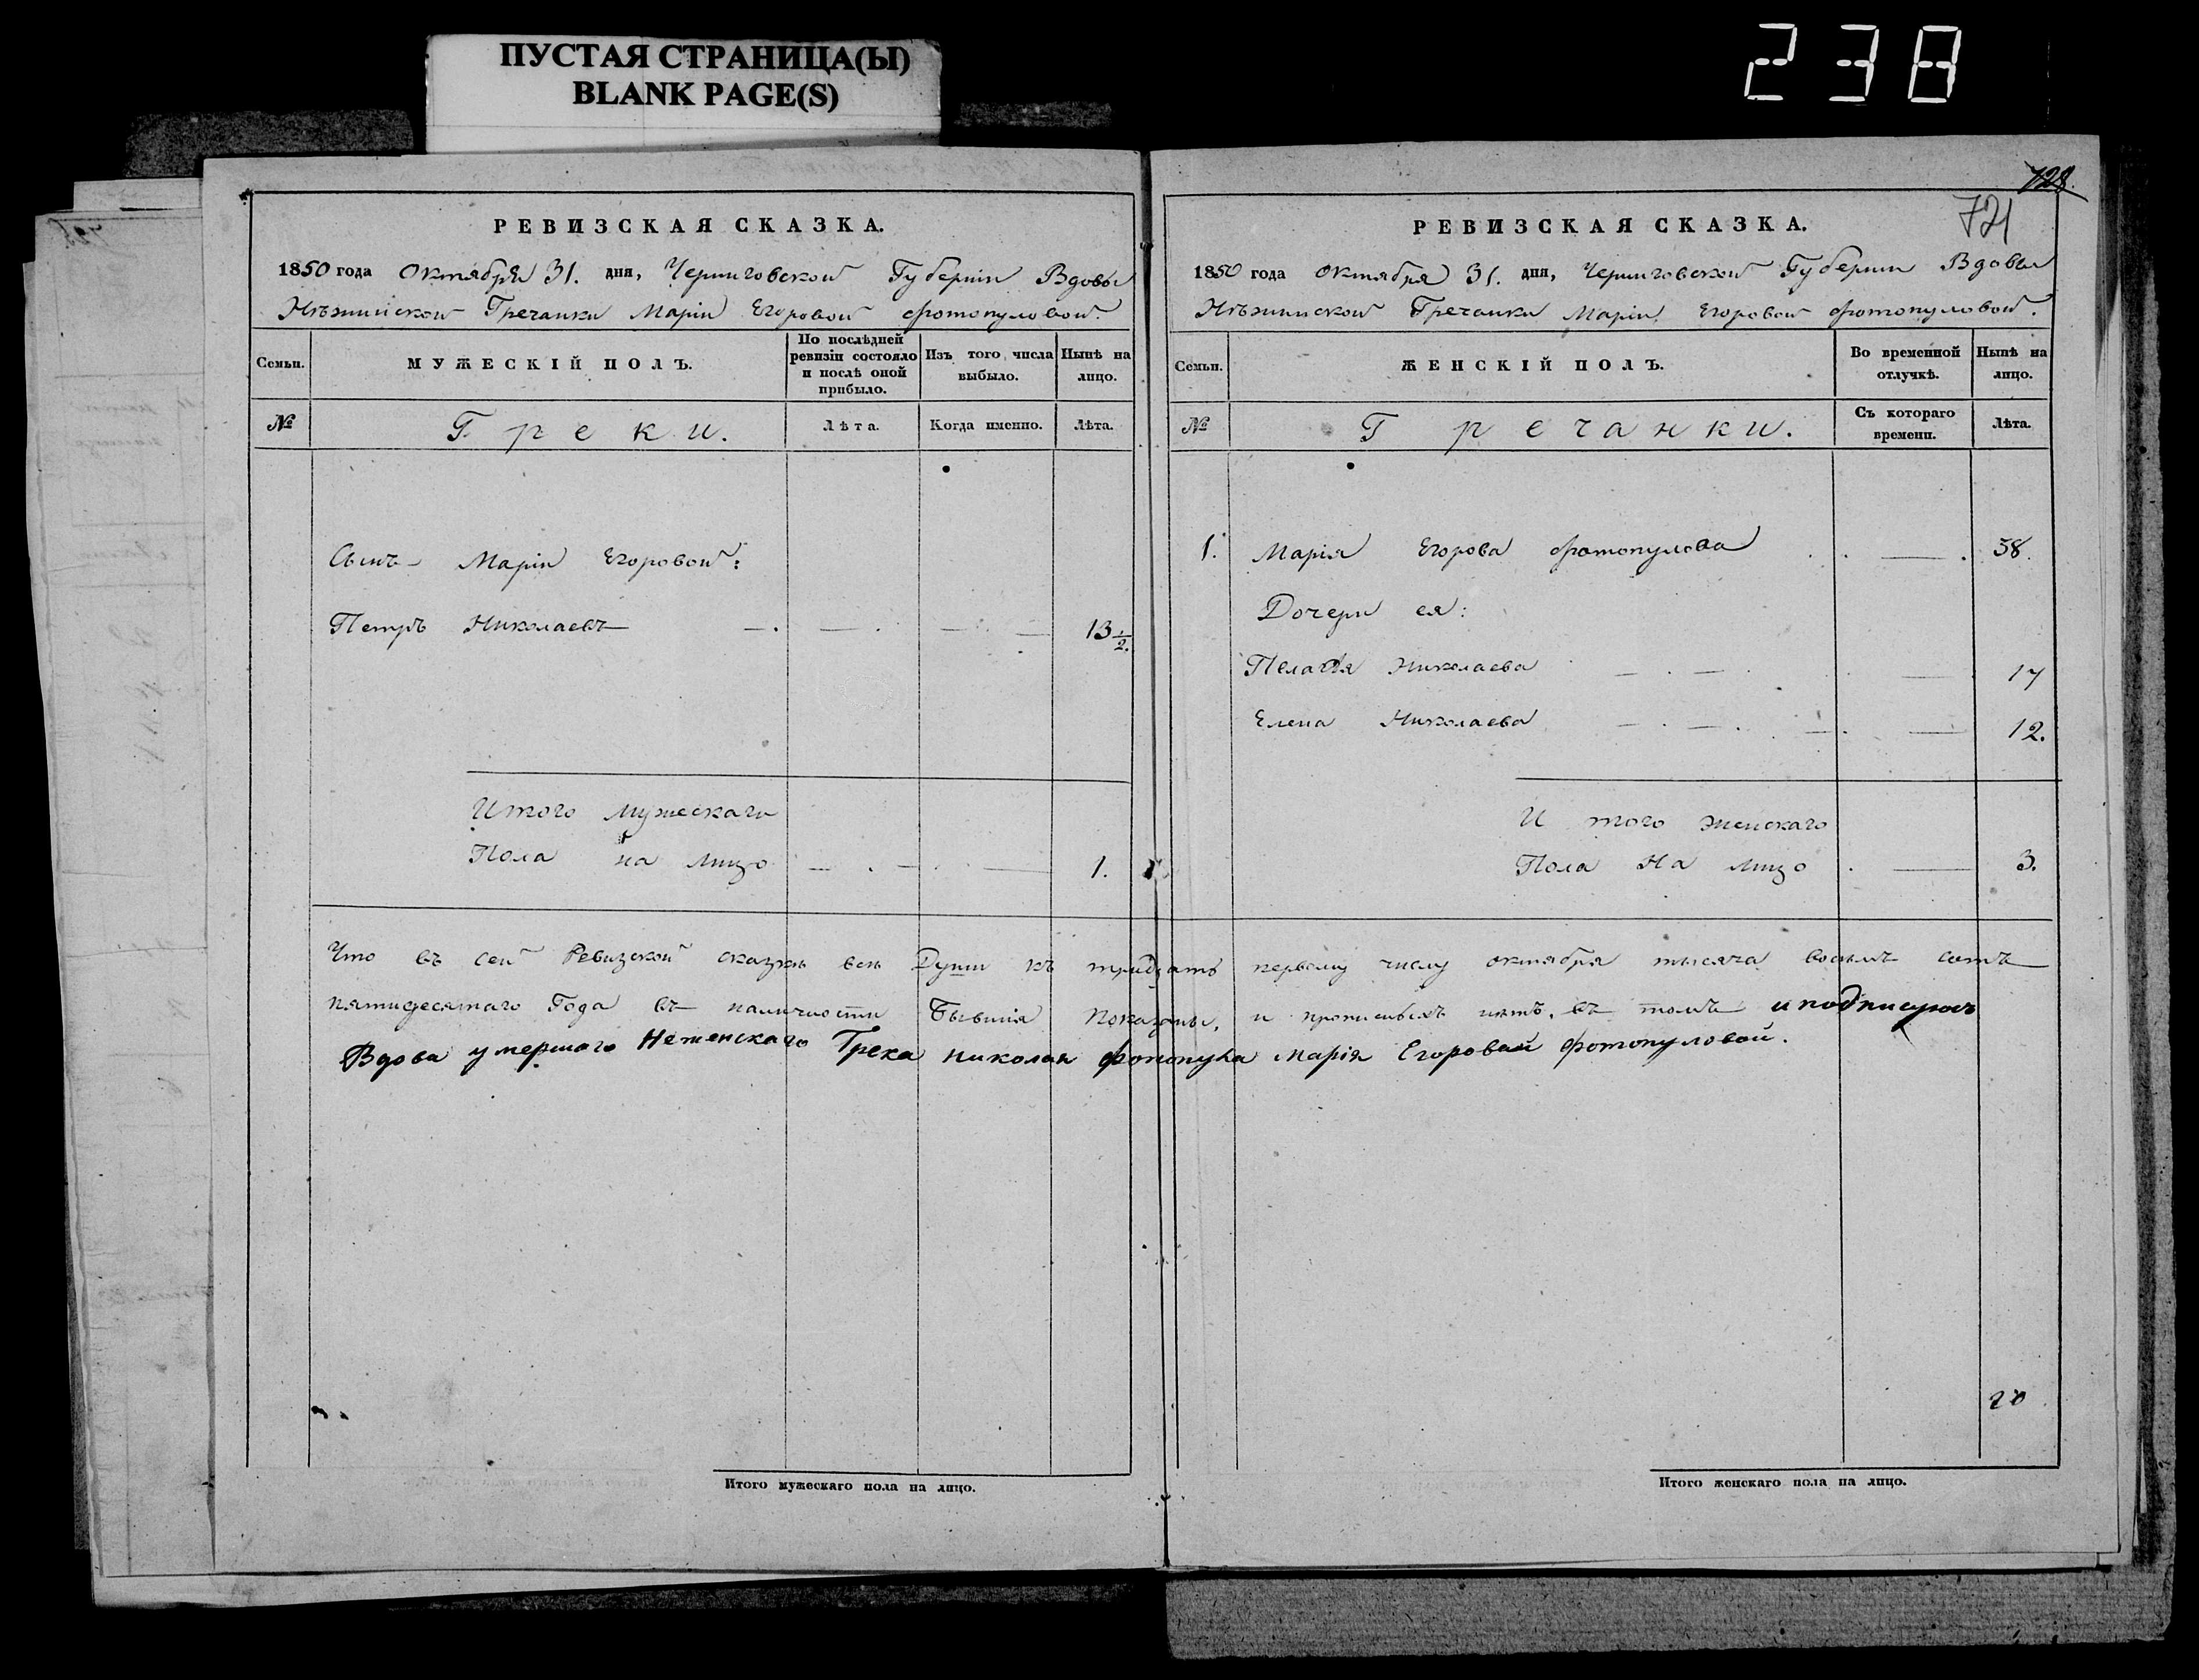 ПУСТАЯ СТРАНИЦА(Ы)
BLANK PAGE(S)
238
РЕВИЗСКАЯ СКАЗКА.
1850 года Октября 31. дня, Черниговской Губерніи Вдовы
Нѣжинской Гречанки Маріи Егоровой Фотопуловой.
Семьи.
МУЖЕСКІЙ ПОЛЪ.
По послѣдней ревизіи состояло и послѣ оной прибыло.
Изъ того числа выбыло.
Нынѣ на лицо.
№
Греки.
Лѣта.
Когда именно.
Лѣта.
Сынъ Маріи Егоровой:
Петръ Николаевъ 13 1/2.
Итого мужескаго
Пола на лицо 1.
728.
721
РЕВИЗСКАЯ СКАЗКА.
1850 года Октября 31. дня, Черниговской Губерніи Вдовы
Нѣжинской Гречанки Маріи Егоровой Фотопуловой.
Семьи.
ЖЕНСКІЙ ПОЛЪ.
Во временной отлучкѣ.
Нынѣ на лицо.
№
Гречанки.
Съ котораго времени.
Лѣта.
1. Марія Егорова Фотопулова 38.
Дочери ея:
Пелагія Николаева 17
Елена Николаева 12.
Итого женскаго
Пола На лицо 3.
Что въ сей Ревизской сказкѣ всѣ Души къ тридцать первому числу октября тысяча восьмъ сотъ
пятидесятаго Года въ наличности Бывшія показаны, и прописныхъ нѣтъ, въ томъ и подписуюсь
Вдова умершаго Неженскаго Грека николая фотопула марія Егоровой фотопуловой.
20
Итого мужескаго пола на лицо.
Итого женскаго пола на лицо.